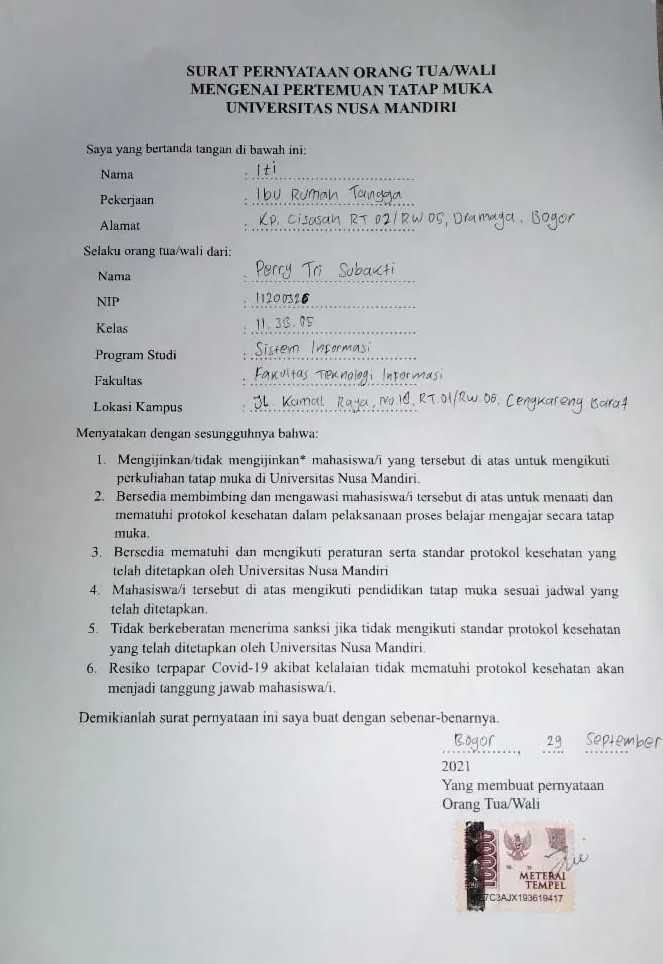 SURAT PERNYATAAN ORANG TUA/WALI
MENGENAI PERTEMUAN TATAP MUKA
UNIVERSITAS NUSA MANDIRI
Saya yang bertanda tangan di bawah ini:
Nama : Iti
Pekerjaan : Ibu Rumah Tangga
Alamat : Kp. Cisasah RT 02/RW 05, Dramaga, Bogor
Selaku orang tua/wali dari:
Nama : Perry Tri Subakti
NIP : 11200326
Kelas : 11.3B.05
Program Studi : Sistem Informasi
Fakultas : Fakultas Teknologi Informasi
Lokasi Kampus : JL. Kamal Raya, No.18, RT.01/RW.06, Cengkareng Barat
Menyatakan dengan sesungguhnya bahwa:
1. Mengijinkan/tidak mengijinkan* mahasiswa/i yang tersebut di atas untuk mengikuti
perkuliahan tatap muka di Universitas Nusa Mandiri.
2. Bersedia membimbing dan mengawasi mahasiswa/i tersebut di atas untuk menaati dan
mematuhi protokol kesehatan dalam pelaksanaan proses belajar mengajar secara tatap
muka.
3. Bersedia mematuhi dan mengikuti peraturan serta standar protokol kesehatan yang
telah ditetapkan oleh Universitas Nusa Mandiri
4. Mahasiswa/i tersebut di atas mengikuti pendidikan tatap muka sesuai jadwal yang
telah ditetapkan.
5. Tidak berkeberatan menerima sanksi jika tidak mengikuti standar protokol kesehatan
yang telah ditetapkan oleh Universitas Nusa Mandiri.
6. Resiko terpapar Covid-19 akibat kelalaian tidak mematuhi protokol kesehatan akan
menjadi tanggung jawab mahasiswa/i.
Demikianlah surat pernyataan ini saya buat dengan sebenar-benarnya.
Bogor, 29 September
2021
Yang membuat pernyataan
Orang Tua/Wali
10000
METERAI
TEMPEL